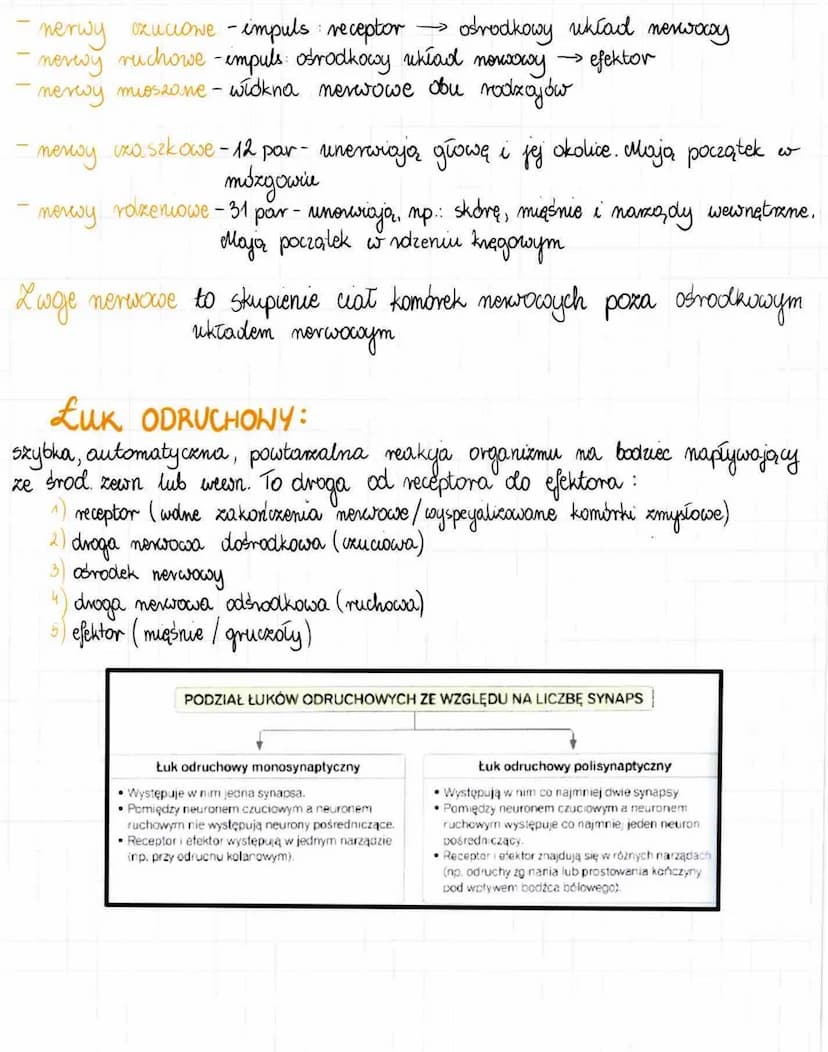 - nerwy czuciowe - impuls: receptor → ośrodkowy układ nerwowy
- nerwy ruchowe - impuls: ośrodkowy układ nerwowy → efektor
- nerwy mieszane - włókna nerwowe obu rodzajów
- nerwy czaszkowe - 12 par - unerwiają głowę i jej okolice. Mają początek w
mózgowiu
- nerwy rdzeniowe - 31 par - unerwiają, np.: skórę, mięśnie i narządy wewnętrzne.
Mają początek w rdzeniu kręgowym
Zwoje nerwowe to skupienie ciał komórek nerwowych poza ośrodkowym
układem nerwowym
ŁUK ODRUCHOWY:
szybka, automatyczna, powtarzalna reakcja organizmu na bodziec napływający
ze środ. zewn lub wewn. To droga od receptora do efektora:
1) receptor (wolne zakończenia nerwowe / wyspecjalizowane komórki zmysłowe)
2) droga nerwowa dośrodkowa (czuciowa)
3) ośrodek nerwowy
4) droga nerwowa odśrodkowa (ruchowa)
5) efektor (mięśnie / gruczoły)
PODZIAŁ ŁUKÓW ODRUCHOWYCH ZE WZGLĘDU NA LICZBĘ SYNAPS
Łuk odruchowy monosynaptyczny
• Występuje w nim jedna synapsa.
• Pomiędzy neuronem czuciowym a neuronem
ruchowym nie występują neurony pośredniczące.
• Receptor i efektor występują w jednym narządzie
(np. przy odruchu kolanowym).
Łuk odruchowy polisynaptyczny
• Występują w nim co najmniej dwie synapsy
• Pomiędzy neuronem czuciowym a neuronem
ruchowym występuje co najmniej jeden neuron
pośredniczący.
• Receptor i efektor znajdują się w różnych narządach
(np. odruchy zginania lub prostowania kończyny
pod wpływem bodźca bólowego).